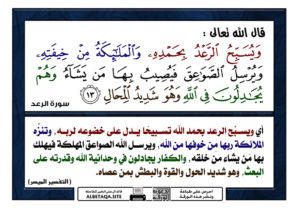 قال الله تعالى :
وَيُسَبِّحُ الرَّعْدُ بِحَمْدِهِ، وَالْمَلَٰٓئِكَةُ مِنْ خِيفَتِهِ،
وَيُرْسِلُ الصَّوَٰعِقَ فَيُصِيبُ بِهَا مَن يَشَآءُ وَهُمْ
يُجَٰدِلُونَ فِي اللَّهِ وَهُوَ شَدِيدُ الْمِحَالِ ١٣
سورة الرعد
أي ويسبِّح الرعد بحمد الله تسبيحًا يدل على خضوعه لربه، وتنزِّه
الملائكة ربها من خوفها من الله، ويرسل الله الصواعق المهلكة فيهلك
بها من يشاء من خلقه، والكفار يجادلون في وحدانية الله وقدرته على
البعث، وهو شديد الحول والقوة والبطش بمن عصاه.
(التفسير الميسر)
ALBETAQA.SITE